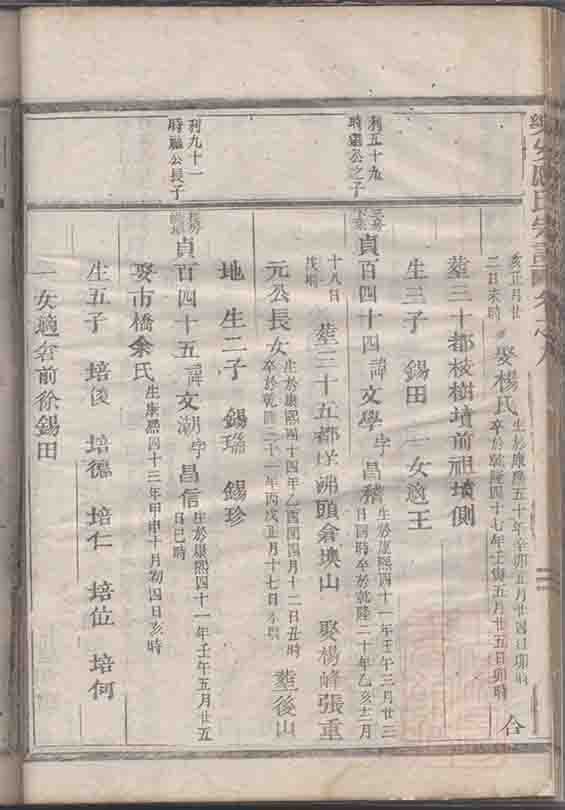 亥正月廿
二日未時 娶楊氏 生於康熙五十年辛卯五月廿四日卯時
卒於乾隆四十七年壬寅五月廿五日卯時 合
塟三十都枝樹墳前祖墳側
生三子 錫田 一女適王
利五十九
時 公之子
貞百四十四 諱文學 字昌 生於康熙四十一年壬午三月廿三
日 時卒於乾隆二十年乙亥十二月
十八日
塟三十五都 頭倉 山 娶楊峰張重
元公長女 生於康熙四十四年乙酉閏四月十二日丑時
卒於乾隆三十一年丙戌正月十七日 塟後山
地 生二子 錫 錫珍
利九十一
時 公長子
貞百四十五 諱文 字昌信 生於康熙四十一年壬午五月廿五
日巳時
娶市橋余氏 生康熙四十三年甲申十月初四日亥時
生五子 培俊 培德 培仁 培位 培何
一女適 前徐錫田